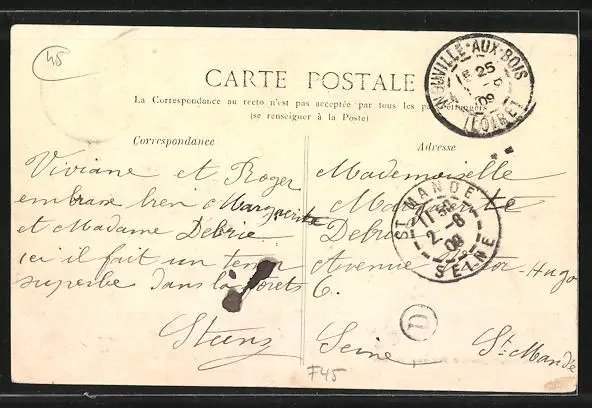 45
CARTE POSTALE
La Correspondance au recto n'est pas acceptée par tous les pays étrangers
(se renseigner à la Poste)
Correspondance
Viviane et Roger
embrasse bien Marguerite
et Madame Debrie
ici il fait un temps
superbe dans la forets
Adresse
Mademoiselle
Marguerite
Debrie
Avenue Victor-Hugo
6.
Seine St Mandé
F45
NEUVILLE-AUX-BOIS
25
09
(LOIRET)
ST MANDE
11 30
2 - 6
09
SEINE
D